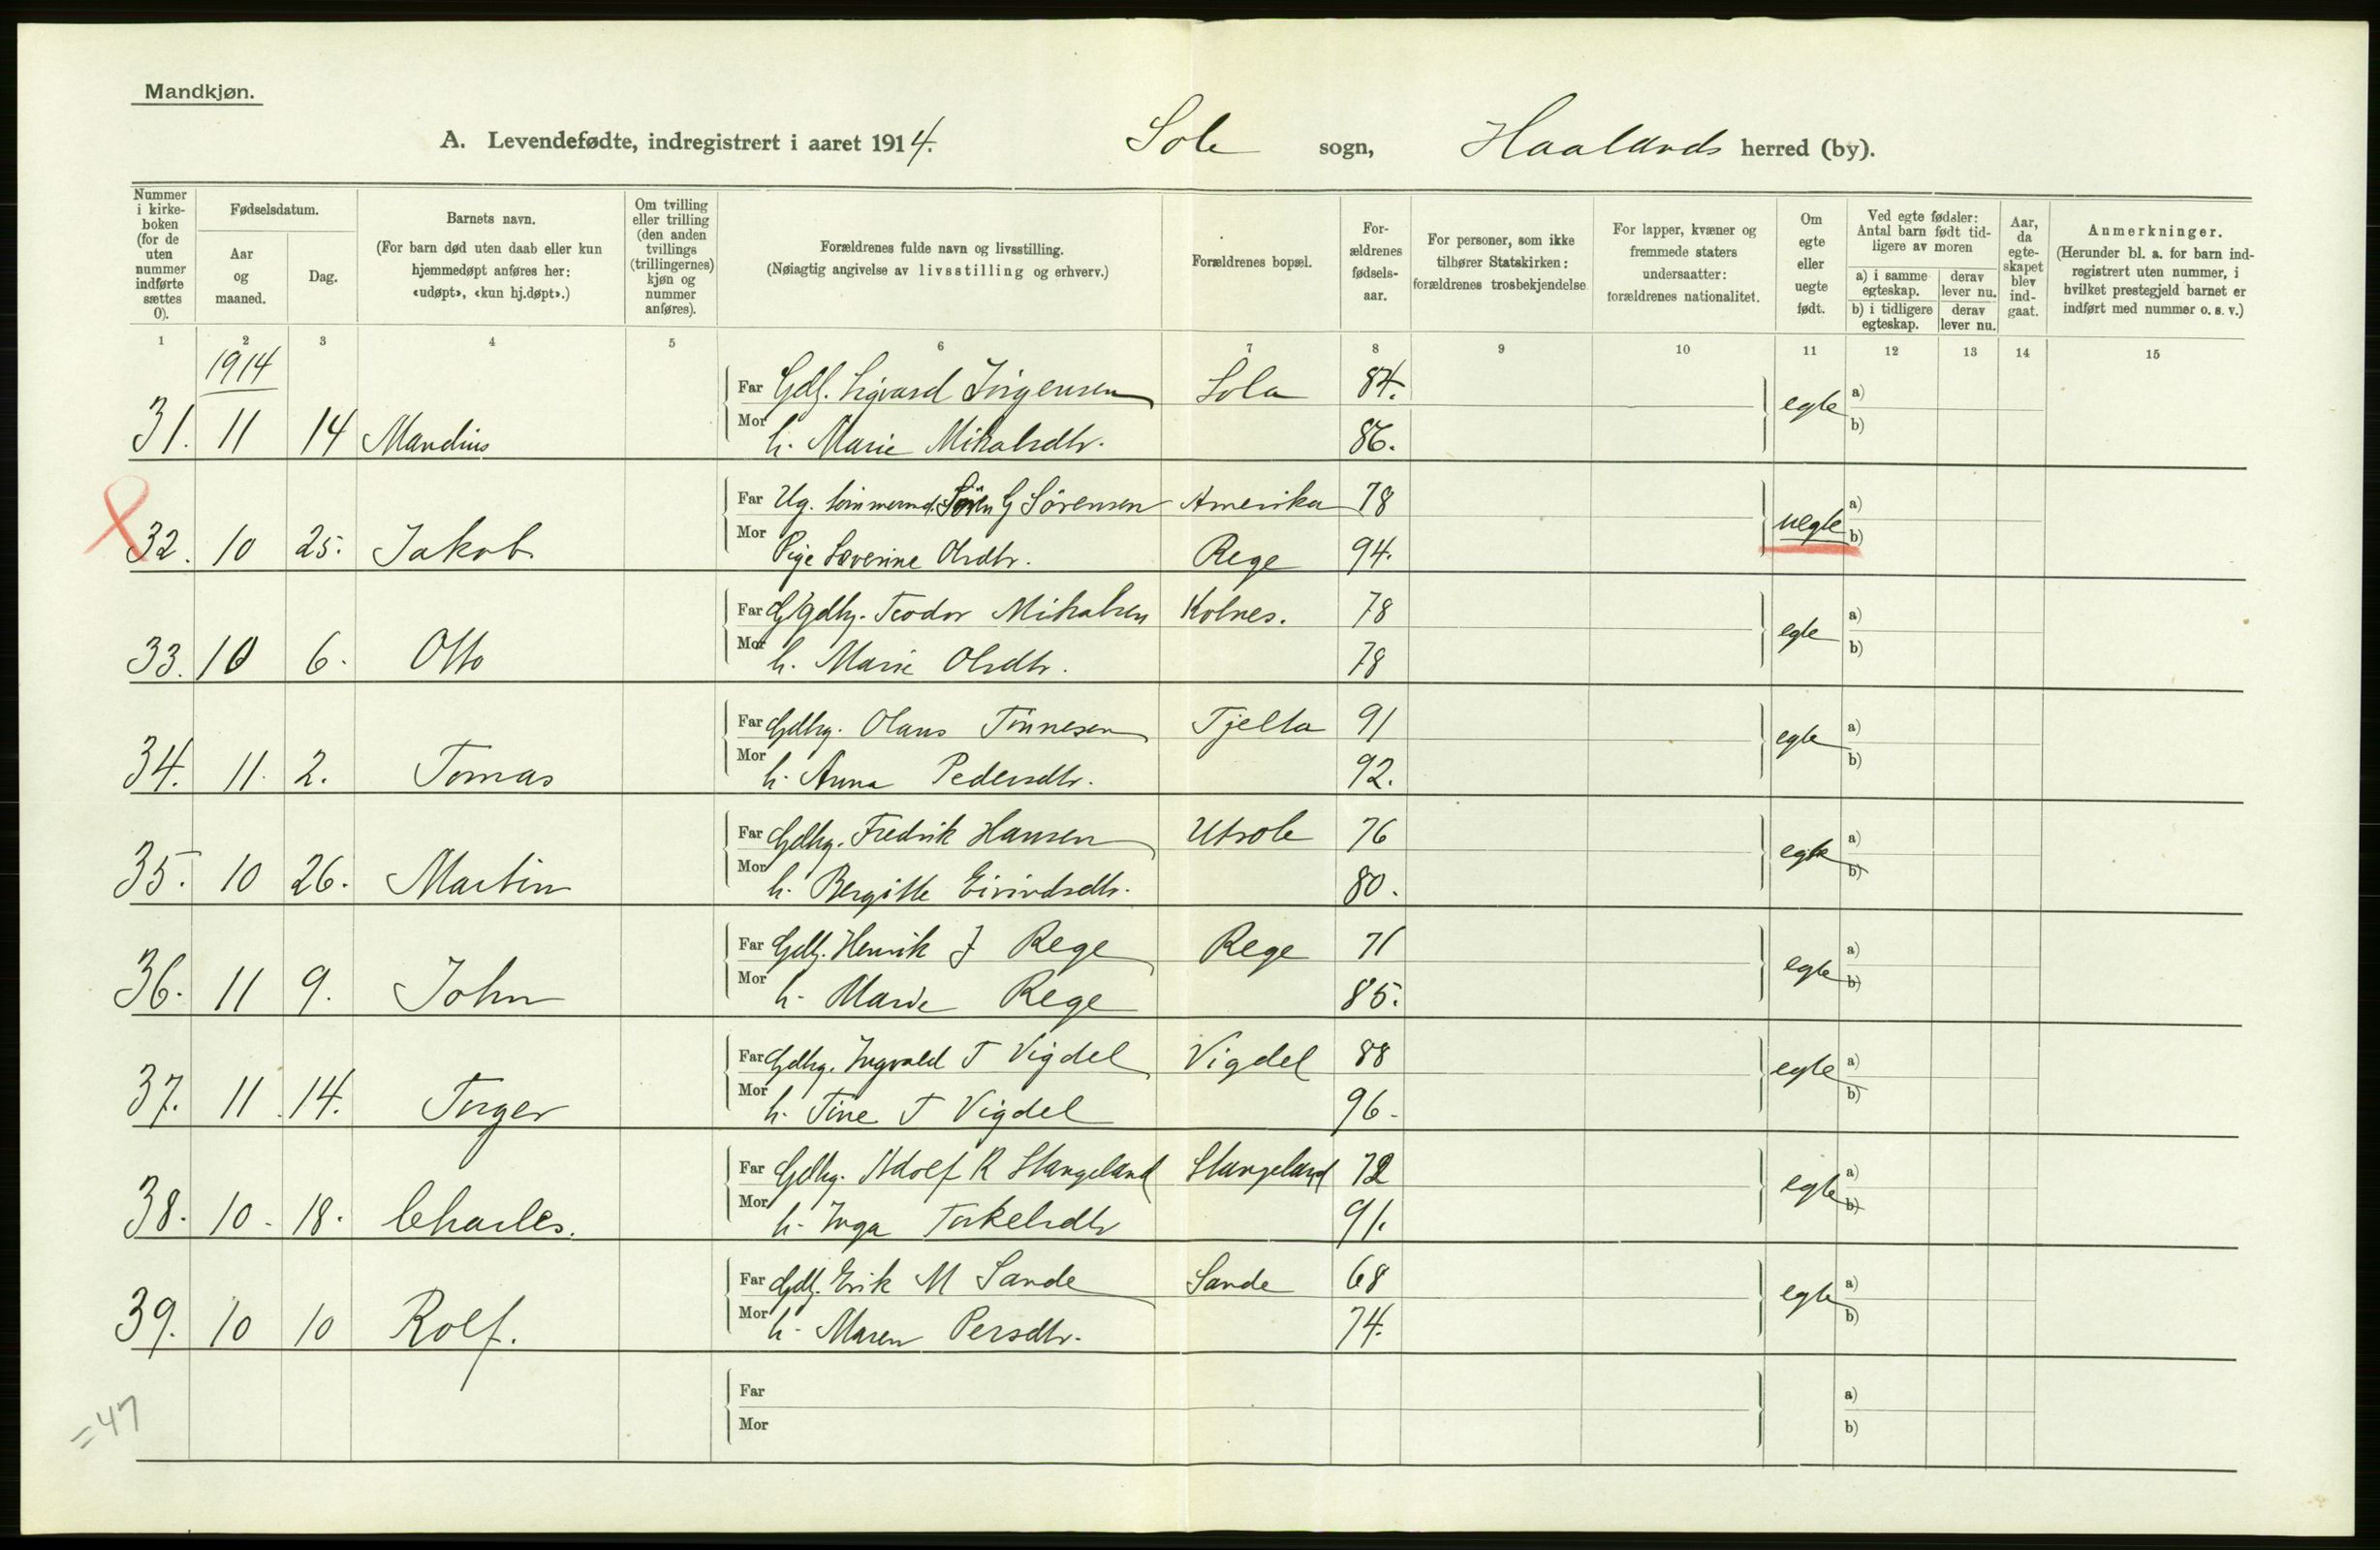 Mandkjøn.
A. Levendefødte, indregistrert i aaret 1914. Sole sogn, Haalands herred (by).
Nummer i kirkeboken (for de uten nummer indførte sættes 0).
Fødselsdatum.
Aar og maaned.
Dag.
Barnets navn.
(For barn død uten daab eller kun hjemmedøpt anføres her: «udøpt», «kun hj.døpt».)
Om tvilling eller trilling (den anden tvillings (trillingernes) kjøn og nummer anføres).
Forældrenes fulde navn og livsstilling.
(Nøiagtig angivelse av livsstilling og erhverv.)
Forældrenes bopæl.
Forældrenes fødselsaar.
For personer, som ikke tilhører Statskirken: forældrenes trosbekjendelse
For lapper, kvæner og fremmede staters undersaatter: forældrenes nationalitet.
Om egte eller uegte født.
Ved egte fødsler: Antal barn født tidligere av moren
a) i samme egteskap.
derav lever nu.
b) i tidligere egteskap.
derav lever nu.
Aar, da egteskapet blev indgaat.
Anmerkninger.
(Herunder bl. a. for barn indregistrert uten nummer, i hvilket prestegjeld barnet er indført med nummer o. s. v.)
1 2 3 4 5 6 7 8 9 10 11 12 13 14 15
1914
Far Gdb. Sigvard Jörgensen Sola 84. a)
31. 11 14 Mandius Mor h. Marie Mikalsdtr. 86. egte b)
Far Ug. tömmermd. Sören G Sörensen Amerika 78 a)
32. 10 25. Jakob Mor Pige Severine Olsdtr. Rege 94. uegte b)
Far G/gdbr. Teodor Mikalsen Kolnes. 78 a)
33. 10 6. Otto Mor h. Marie Olsdtr. 78 egte b)
Far Gdbr. Olaus Tönnesen Tjelta 91 a)
34. 11. 2. Tomas Mor h. Anna Pedersdtr. 92. egte b)
Far Gdbr. Fredrik Hansen Utsole 76 a)
35. 10 26. Martin Mor h. Bergitte Eivindsdtr. 80. egte b)
Far Gdb. Henrik J Rege Rege 71 a)
36. 11 9. John Mor h. Marie Rege 85. egte b)
Far Gdbr. Ingvald T Vigdel Vigdel 88 a)
37. 11 14. Torger Mor h. Tine T Vigdel 96. egte b)
Far Gdbr. Adolf R Stangeland Stangeland 72 a)
38. 10. 18. Charles. Mor h. Inga Torkelsdtr 91. egte b)
Far Gdb. Erik M Sande Sande 68 a)
39. 10 10 Rolf. Mor h. Maren Persdtr. 74. egte b)
Far a)
Mor b)
= 47